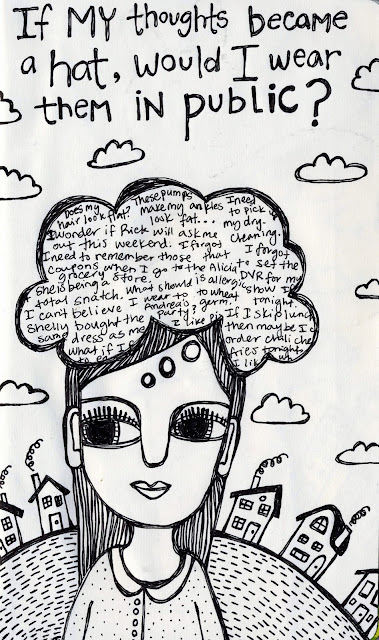 If MY thoughts became
a hat, would I wear
them IN public?
Does my These pumps I need
hair look flat? make my ankles to pick up
look fat... my dry-
I wonder if Rick will ask me cleaning.
out this weekend. I forgot I forgot
I need to remember those that to set the
coupons when I go to the Alicia DVR for my
grocery store. is allergic show
She's being a to wheat tonight.
total snatch. What should I germ.
I can't believe I wear to If I skip lunch
Shelly bought the Andrea's then maybe I can
same dress as me party? order chili che
what if I I like pi fries tonight.
I lik